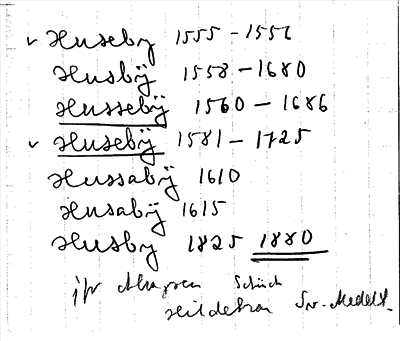 ✓ Huseby 1555-1556
Husbÿ 1558-1680
Hussebÿ 1560-1686
✓ Husebÿ 1581-1725
Hussabÿ 1610
Husabÿ 1615
Husby 1825 1880
Schück
Hildebran Sv. Medelt.